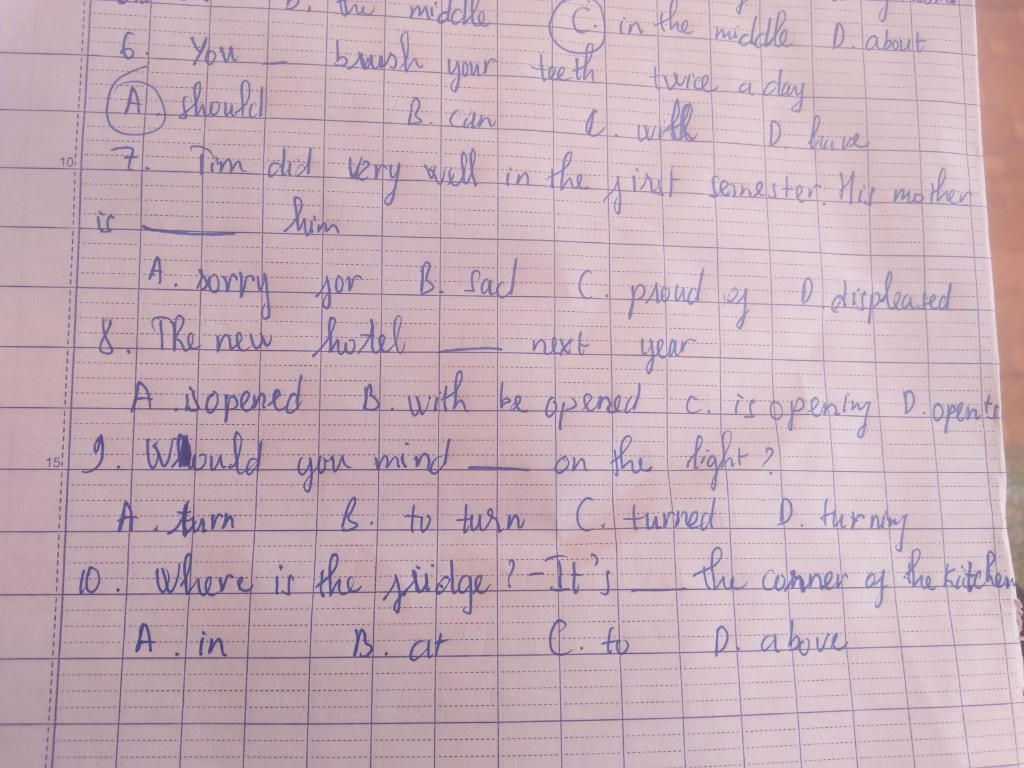 D. the middle C. in the middle D. about
6. You __ brush your teeth twice a day
A should B. can C. with D. have
10
7. Tim did very well in the first semester. His mother
is ____ him
A. sorry for B. sad C. proud of D. displeated
8. The new hotel ___ next year
A. opened B. with be opened C. is opening D. opents
15
9. Would you mind ___ on the light?
A. turn B. to turn C. turned D. turning
10. Where is the fridge? - It's ___ the conner of the kitchen
A. in B. at C. to D. above